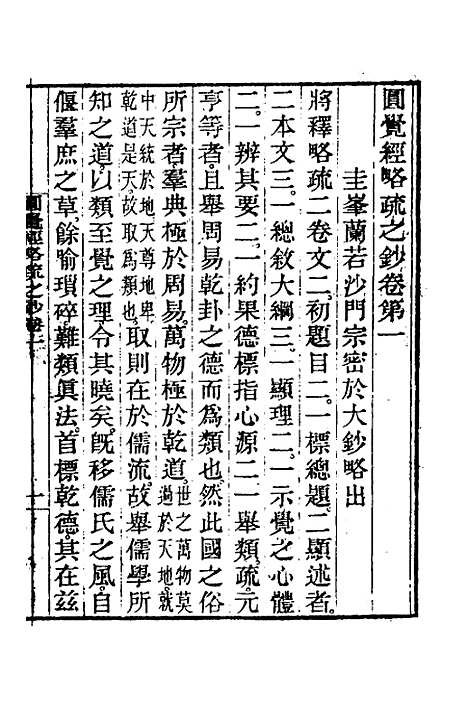 圓覺經略疏之鈔卷第一
圭峯蘭若沙門宗密於大鈔略出
將釋略疏二卷文二初題目二一標總題二顯述者
二本文三一總敘大綱三一顯理二一示覺之心體
二二一辨其要二一約果德標指心源二一舉類疏元
亨等者且舉周易乾卦之德而爲類也然此國之俗
所宗者羣典極於周易萬物極於乾道世之萬物莫過於天地就
中天統於地天尊地卑乾道是天故取爲類也取則在於儒流故舉儒學所
知之道以類至覺之理令其曉矣旣移儒氏之風自
偃羣庶之草餘喻瑣碎難類眞法首標乾德其在茲
圓覺經略疏之鈔卷一
一